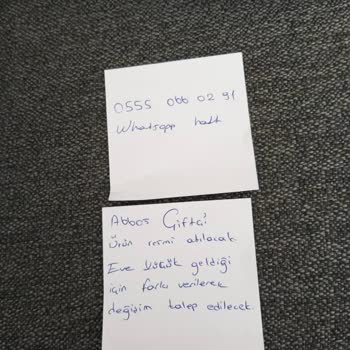 0555 066 02 91
Whatsapp hattı
Abbas Çiftçi
Ürün resmi atılacak
Eve küçük geldiği
için farkı verilerek
değişim talep edilecek.